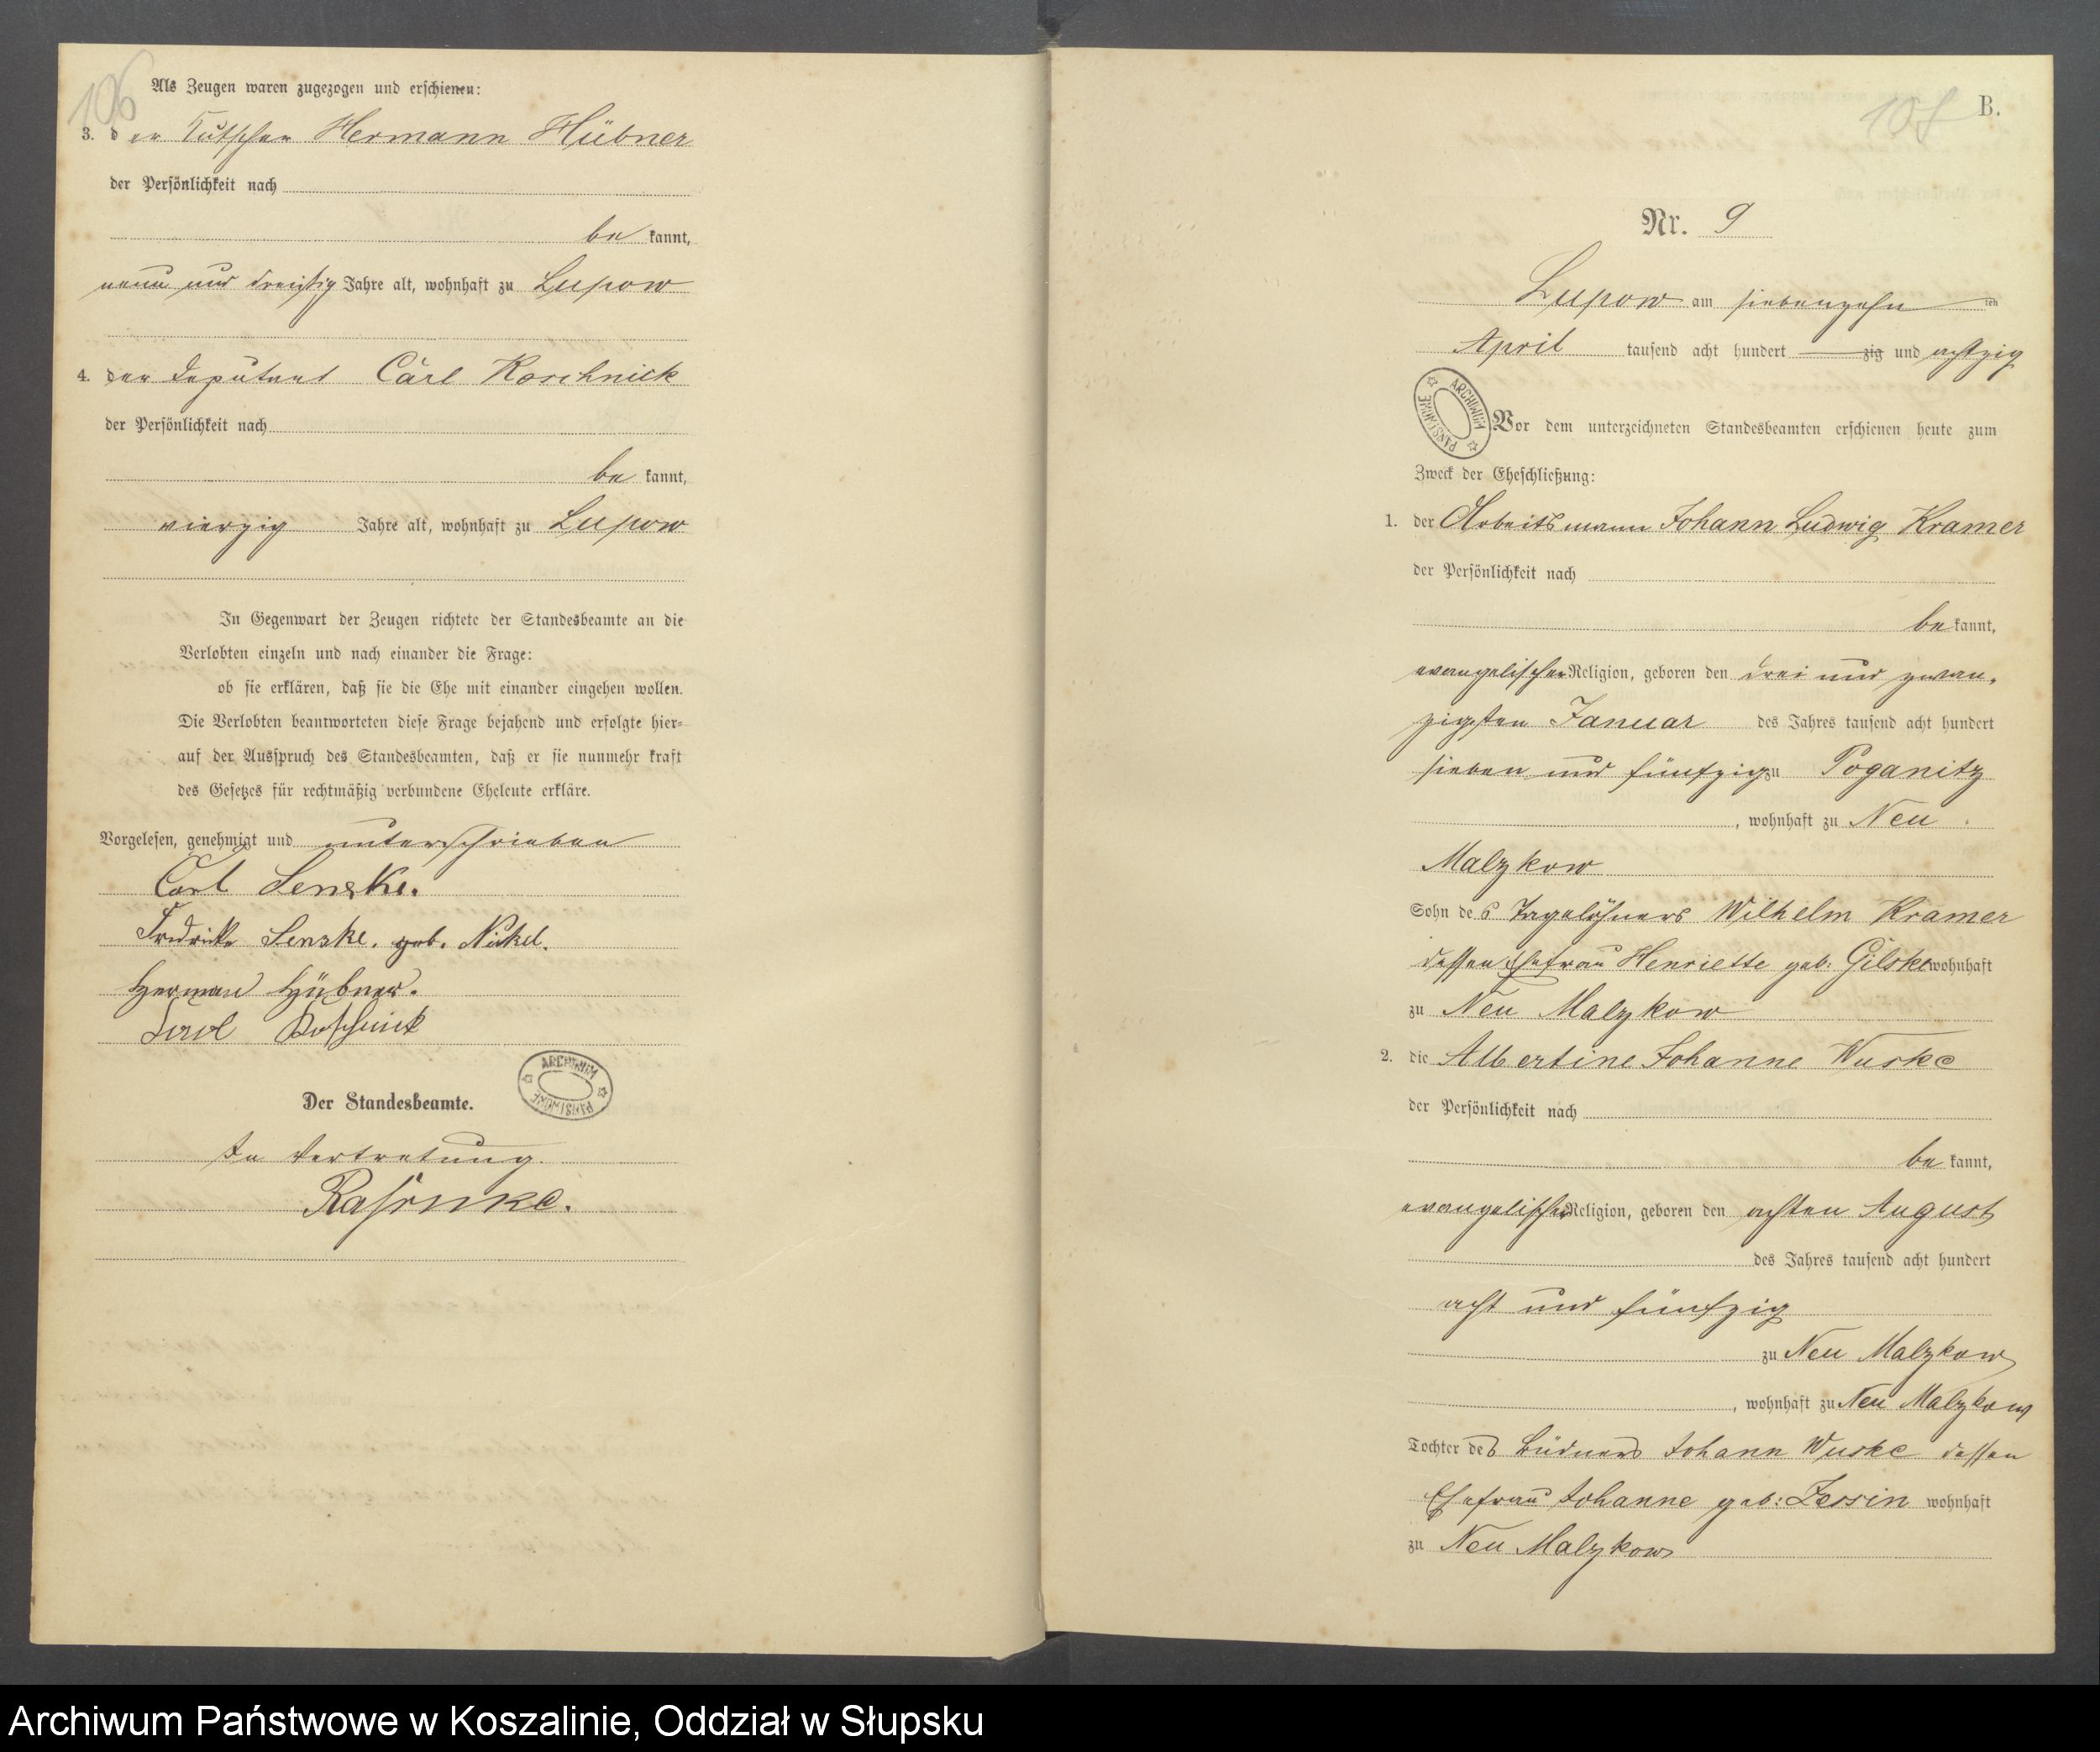 106
Als Zeugen waren zugezogen und erschienen:
3. der Kutscher Hermann Hübner
der Persönlichkeit nach
be kannt,
neun und dreißig Jahre alt, wohnhaft zu Lupow
4. der Deputant Carl Koschnick
der Persönlichkeit nach
be kannt,
vierzig Jahre alt, wohnhaft zu Lupow
In Gegenwart der Zeugen richtete der Standesbeamte an die
Verlobten einzeln und nach einander die Frage:
ob sie erklären, daß sie die Ehe mit einander eingehen wollen.
Die Verlobten beantworteten diese Frage bejahend und erfolgte hier-
auf der Ausspruch des Standesbeamten, daß er sie nunmehr kraft
des Gesetzes für rechtmäßig verbundene Eheleute erkläre.
Vorgelesen, genehmigt und unterschrieben
Carl Senske.
Senske. geb. Nickel.
Herman Hübner.
Koschnick
ARCHIWUM PAŃSTWOWE
Der Standesbeamte.
In Vertretung.
107
B.
Nr. 9
Lupow am siebenzehn ten
April tausend acht hundert zig und achtzig
ARCHIWUM PAŃSTWOWE
Vor dem unterzeichneten Standesbeamten erschienen heute zum
Zweck der Eheschließung:
1. der Arbeitsmann Johann Ludwig Kramer
der Persönlichkeit nach
be kannt,
evangelischer Religion, geboren den drei und zwan-
zigsten Januar des Jahres tausend acht hundert
sieben und fünfzig zu Poganitz
, wohnhaft zu Neu
Malzkow
Sohn des Tagelöhners Wilhelm Kramer
dessen Ehefrau Henriette geb: Gilske wohnhaft
zu Neu Malzkow
2. die Albertine Johanne Wuske
der Persönlichkeit nach
be kannt,
evangelischer Religion, geboren den achten August
des Jahres tausend acht hundert
acht und fünfzig
zu Neu Malzkow
, wohnhaft zu Neu Malzkow
Tochter des Büdners Johann Wuske dessen
Ehefrau Johanne geb: Zessin wohnhaft
zu Neu Malzkow
Archiwum Państwowe w Koszalinie, Oddział w Słupsku